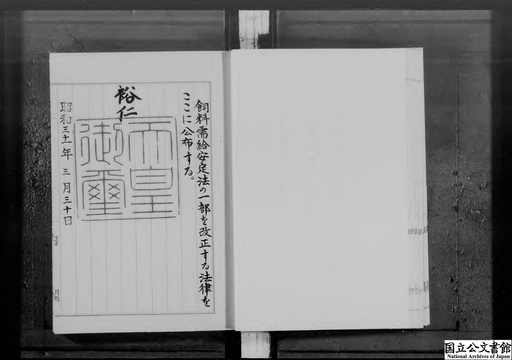 飼料需給安定法の一部を改正する法律を
ここに公布する。
裕仁
天皇
御璽
昭和三十一年三月三十日
国立公文書館
National Archives of Japan